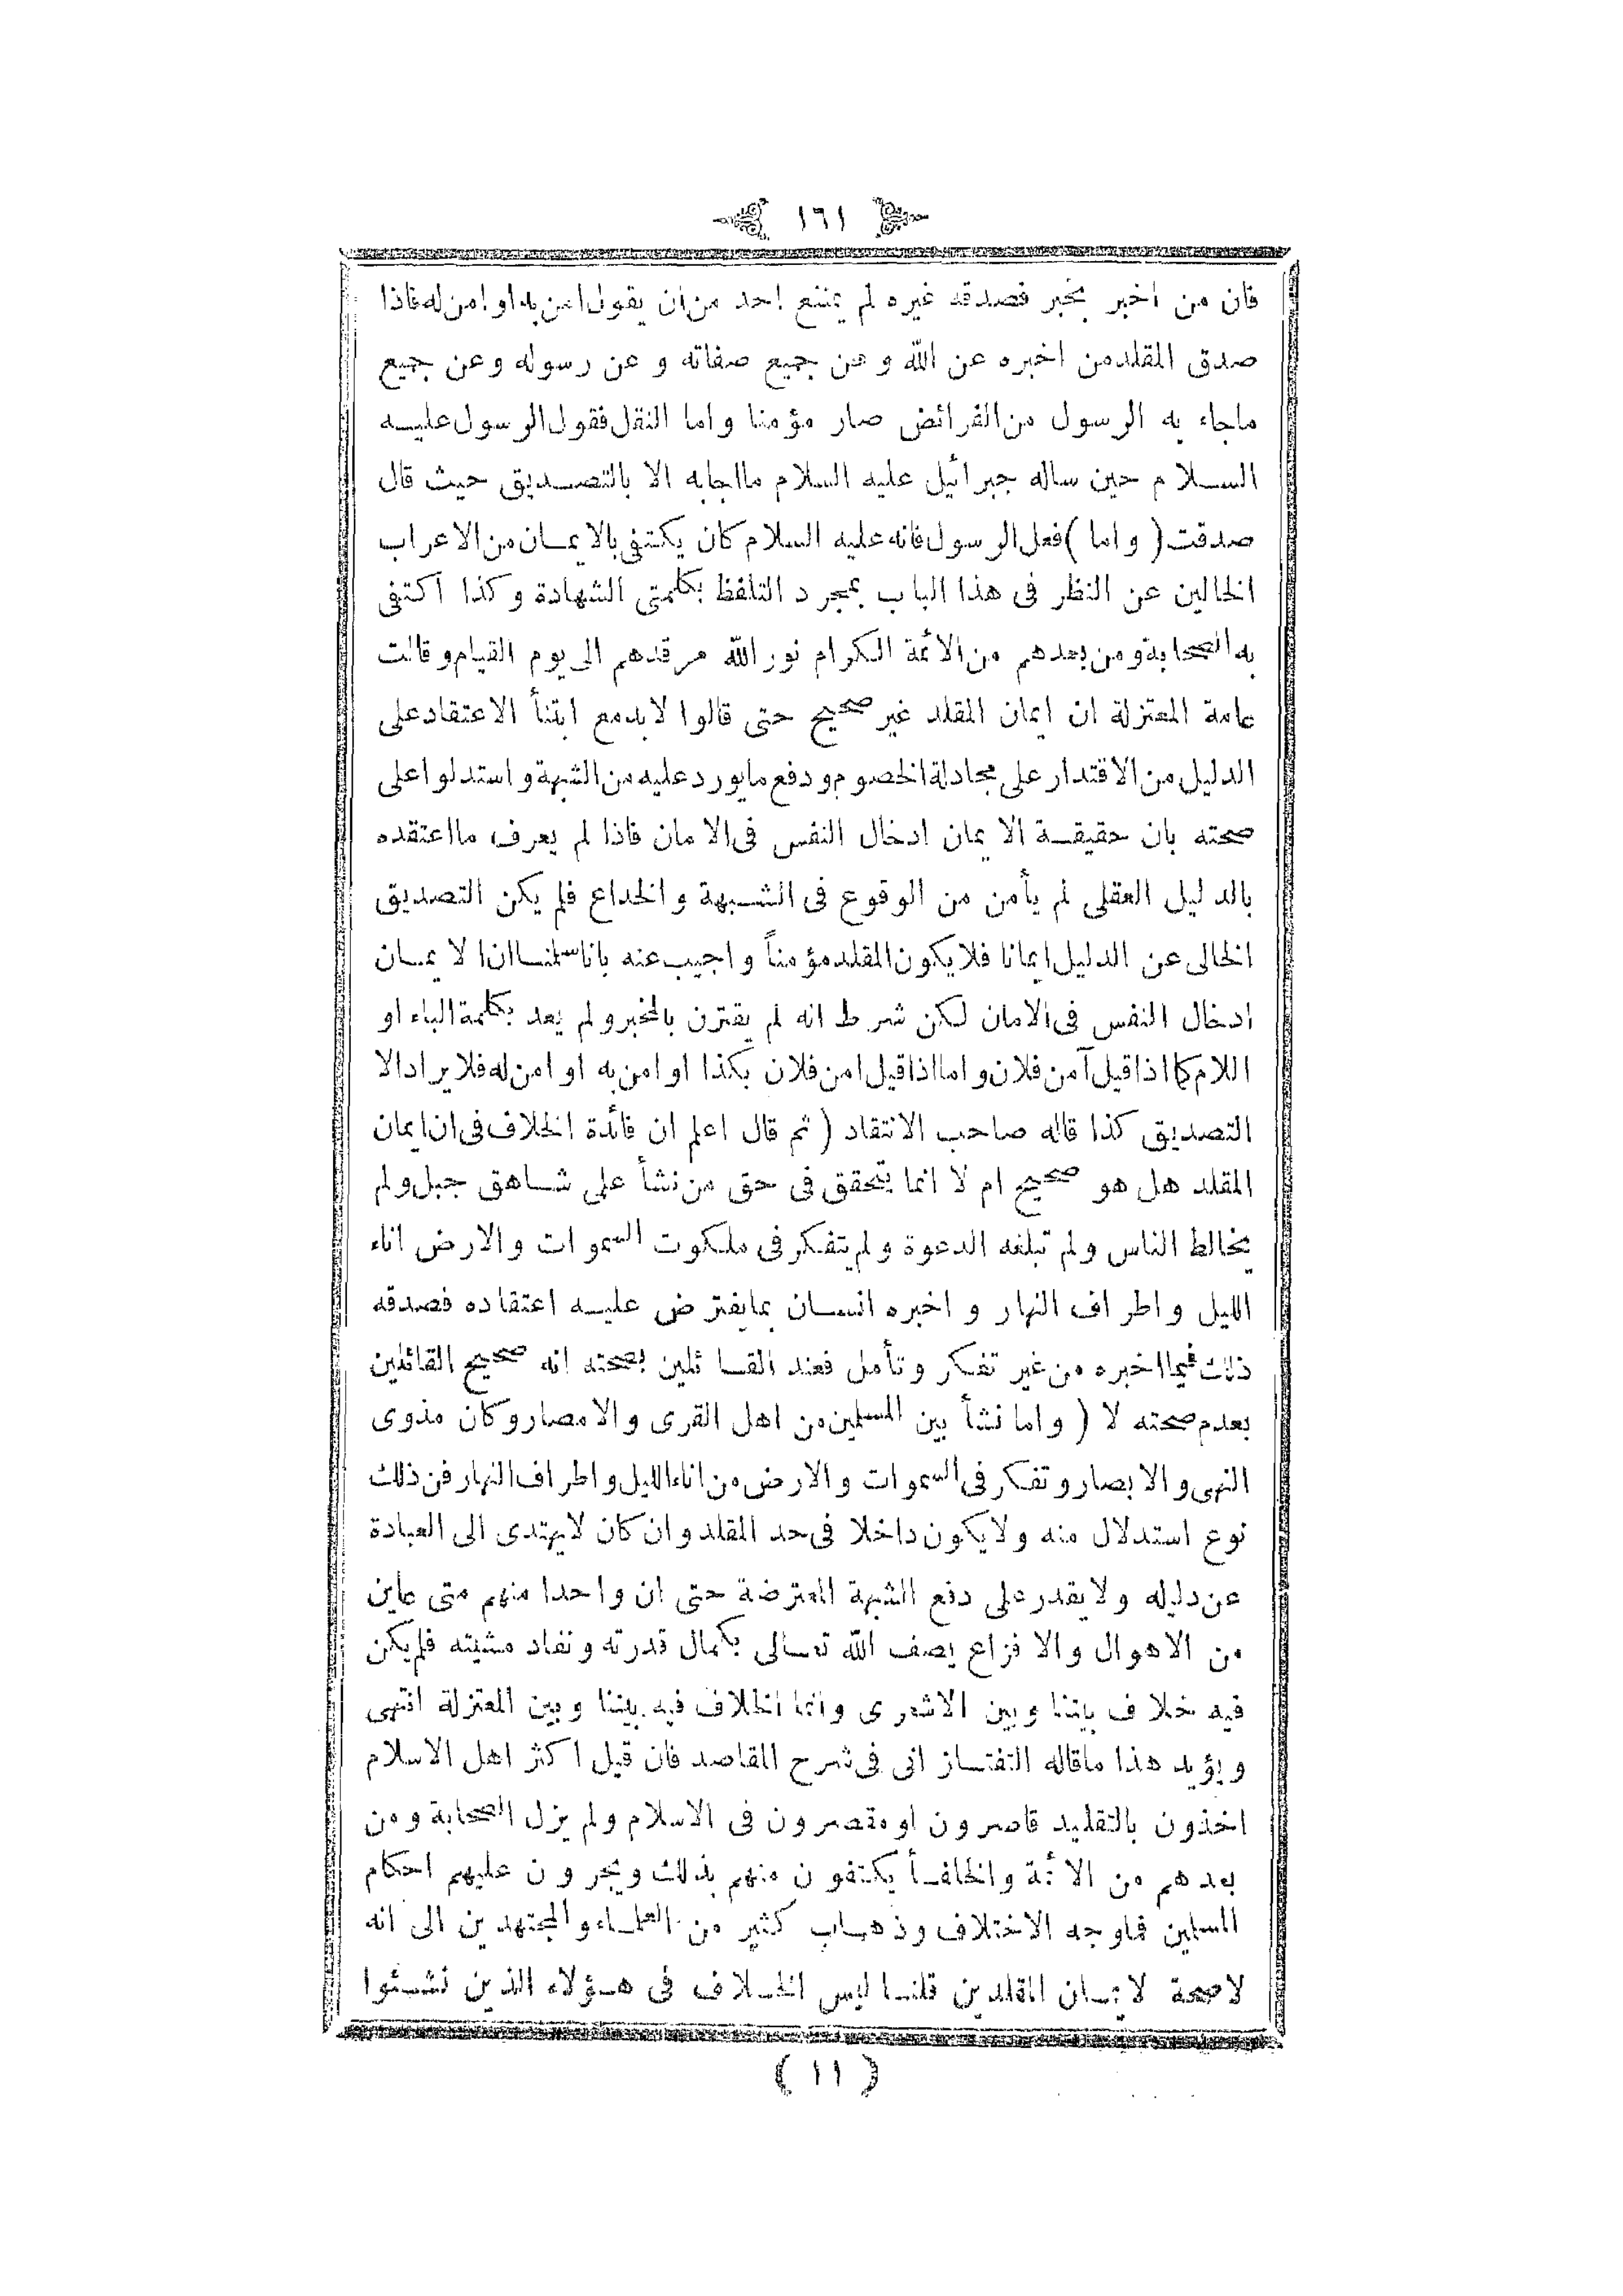 ١٦١
فان من اخبر بخبر فصدقه غيره لم يمنع احد من ان يقول امن به او امن له فاذا
صدق المقلد من اخبره عن الله و عن جميع صفاته و عن رسوله و عن جميع
ماجاء به الرسول من الفرائض صار مؤمنا واما النقل فقول الرسول عليه
السلام حين ساله جبرائيل عليه السلام مااجابه الا بالتصديق حيث قال
صدقت ( واما ) فعل الرسول فانه عليه السلام كان يكتفى بالايمان من الاعراب
الخالين عن النظر فى هذا الباب بمجرد التلفظ بكلمتى الشهادة وكذا اكتفى
به الصحابة ومن بعدهم من الائمة الكرام نور الله مرقدهم الى يوم القيام وقالت
عامة المعتزلة ان ايمان المقلد غير صحيح حتى قالوا لابد مع ابتنأ الاعتقاد على
الدليل من الاقتدار على مجادلة الخصوم ودفع مايورد عليه من الشبهة واستدلوا على
صحته بان حقيقة الايمان ادخال النفس فى الامان فاذا لم يعرف مااعتقده
بالدليل العقلى لم يأمن من الوقوع فى الشبهة والخداع فلم يكن التصديق
الخالى عن الدليل ايمانا فلايكون المقلد مؤمناً واجيب عنه باناسلمنا ان الايمان
ادخال النفس فى الامان لكن شرط انه لم يقترن بالخبر ولم يعد بكلمة الباء او
اللام كما اذا قيل آمن فلان واما اذا قيل امن فلان بكذا او امن به او امن له فلايراد الا
التصديق كذا قاله صاحب الانتقاد ( ثم قال اعلم ان فائدة الخلاف فى ان ايمان
المقلد هل هو صحيح ام لا انما يتحقق فى حق من نشأ على شاهق جبل ولم
يخالط الناس ولم تبلغه الدعوة ولم يتفكر فى ملكوت السموات والارض اناء
الليل واطراف النهار و اخبره انسان بمايفترض عليه اعتقاده فصدقه
ذلك فيما اخبره من غير تفكر وتأمل فعند القائلين بصحته انه صحيح القائلين
بعدم صحته لا ( واما نشأ بين المسلمين من اهل القرى والامصار وكان مذوى
النهى والابصار وتفكر فى السموات والارض من اناء الليل واطراف النهار فمن ذلك
نوع استدلال منه ولايكون داخلا فى حد المقلد وان كان لايهتدى الى العبادة
عن دليله ولايقدر على دفع الشبهة المعترضة حتى ان واحدا منهم متى عاين
من الاهوال والافزاع يصف الله تعالى بكمال قدرته ونفاد مشيته فلم يكن
فيه خلاف بيننا وبين الاشعرى وانما الخلاف فيه بيننا وبين المعتزلة انتهى
ويؤيد هذا ماقاله التفتازانى فى شرح المقاصد فان قيل اكثر اهل الاسلام
اخذون بالتقليد قاصرون او مقصرون فى الاسلام ولم يزل الصحابة ومن
بعدهم من الائمة والخلفأ يكتفون منهم بذلك ويجرون عليهم احكام
المسلمين فماوجه الاختلاف وذهاب كثير من العلماء والمجتهدين الى انه
لاصحة لايمان المقلدين قلنا ليس الخلاف فى هؤلاء الذين نشئوا
( ١١ )